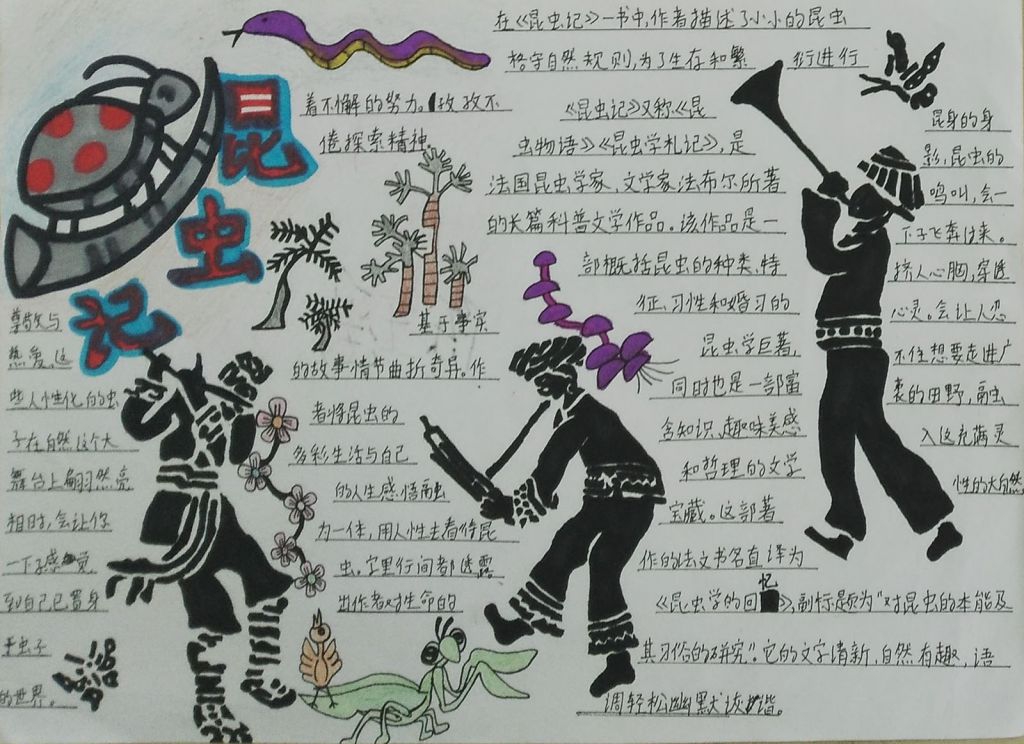 昆
虫
记
在《昆虫记》一书中,作者描述了小小的昆虫
恪守自然规则,为了生存和繁 衍进行
着不懈的努力。孜孜不
倦探索精神
《昆虫记》又称《昆
虫物语》《昆虫学札记》,是
法国昆虫学家、文学家法布尔所著
的长篇科普文学作品。该作品是一
部概括昆虫的种类、特
征、习性和婚习的
昆虫学巨著,
同时也是一部富
含知识、趣味美感
和哲理的文学
宝藏。这部著
作的法文书名直译为
《昆虫学的回忆》,副标题为“对昆虫的本能及
其习俗的研究”。它的文字清新,自然有趣,语
调轻松幽默诙谐。
基于事实
的故事情节曲折奇异。作
者将昆虫的
多彩生活与自己
的人生感悟融
为一体,用人性去看待昆
虫。字里行间都透露
出作者对生命的
尊敬与
热爱。这
些人性化的虫
子在自然这个大
舞台上翩翩然亮
相时,会让你
一下子感觉
到自己已置身
于虫子
的世界。
昆身的身
影,昆虫的
鸣叫,会一
下子飞奔过来。
挤人心胸,穿透
心灵。会让人忍
不住想要走进广
袤的田野,融
入这充满灵
性的大自然